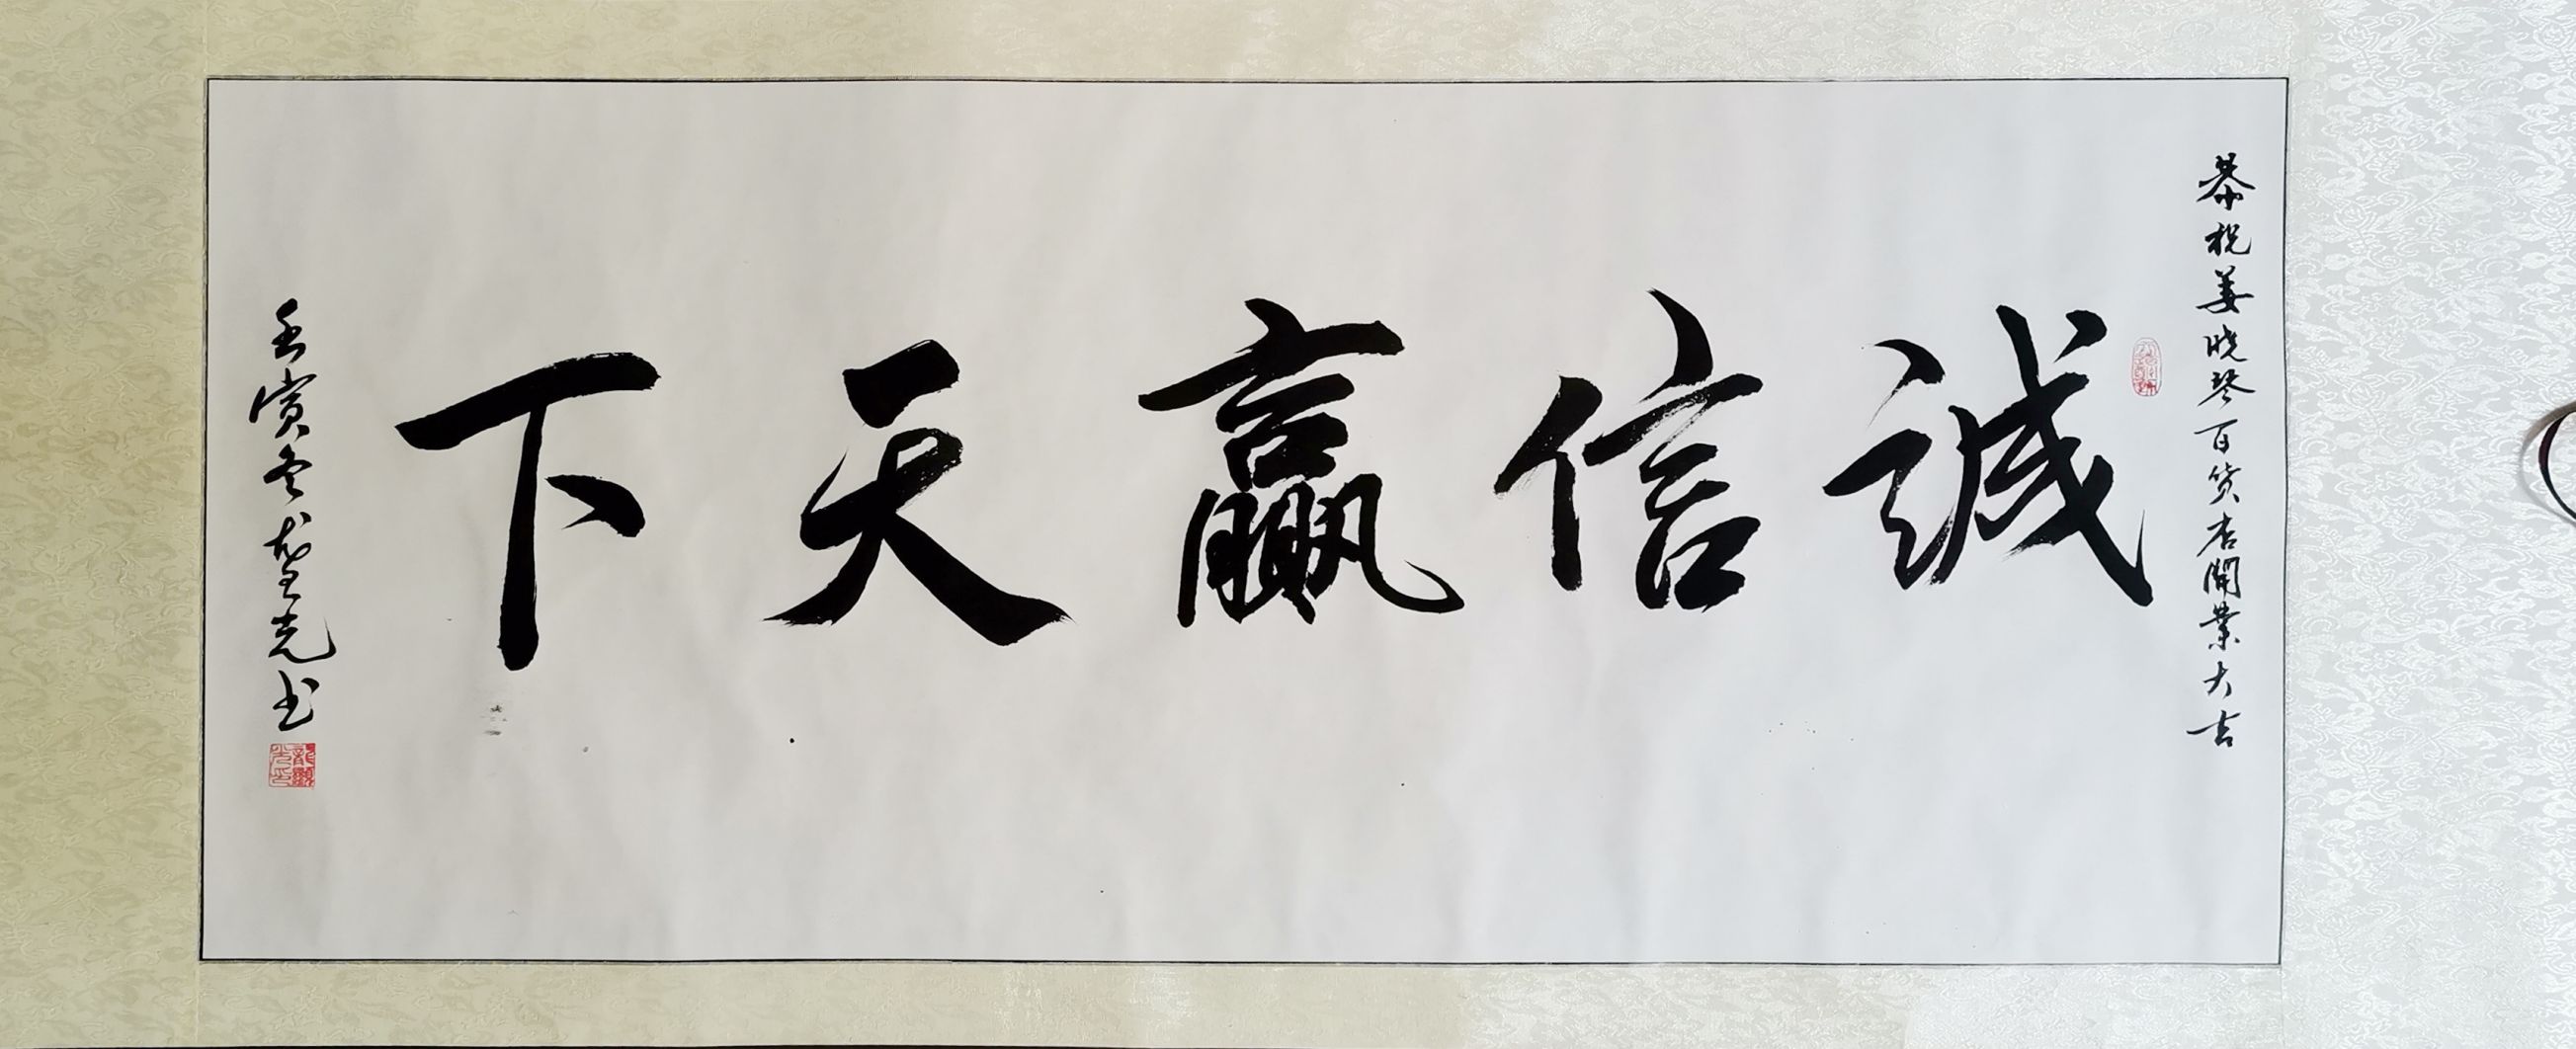 恭祝姜晓琴百货店開業大吉
誠信贏天下
壬寅冬龙显光书